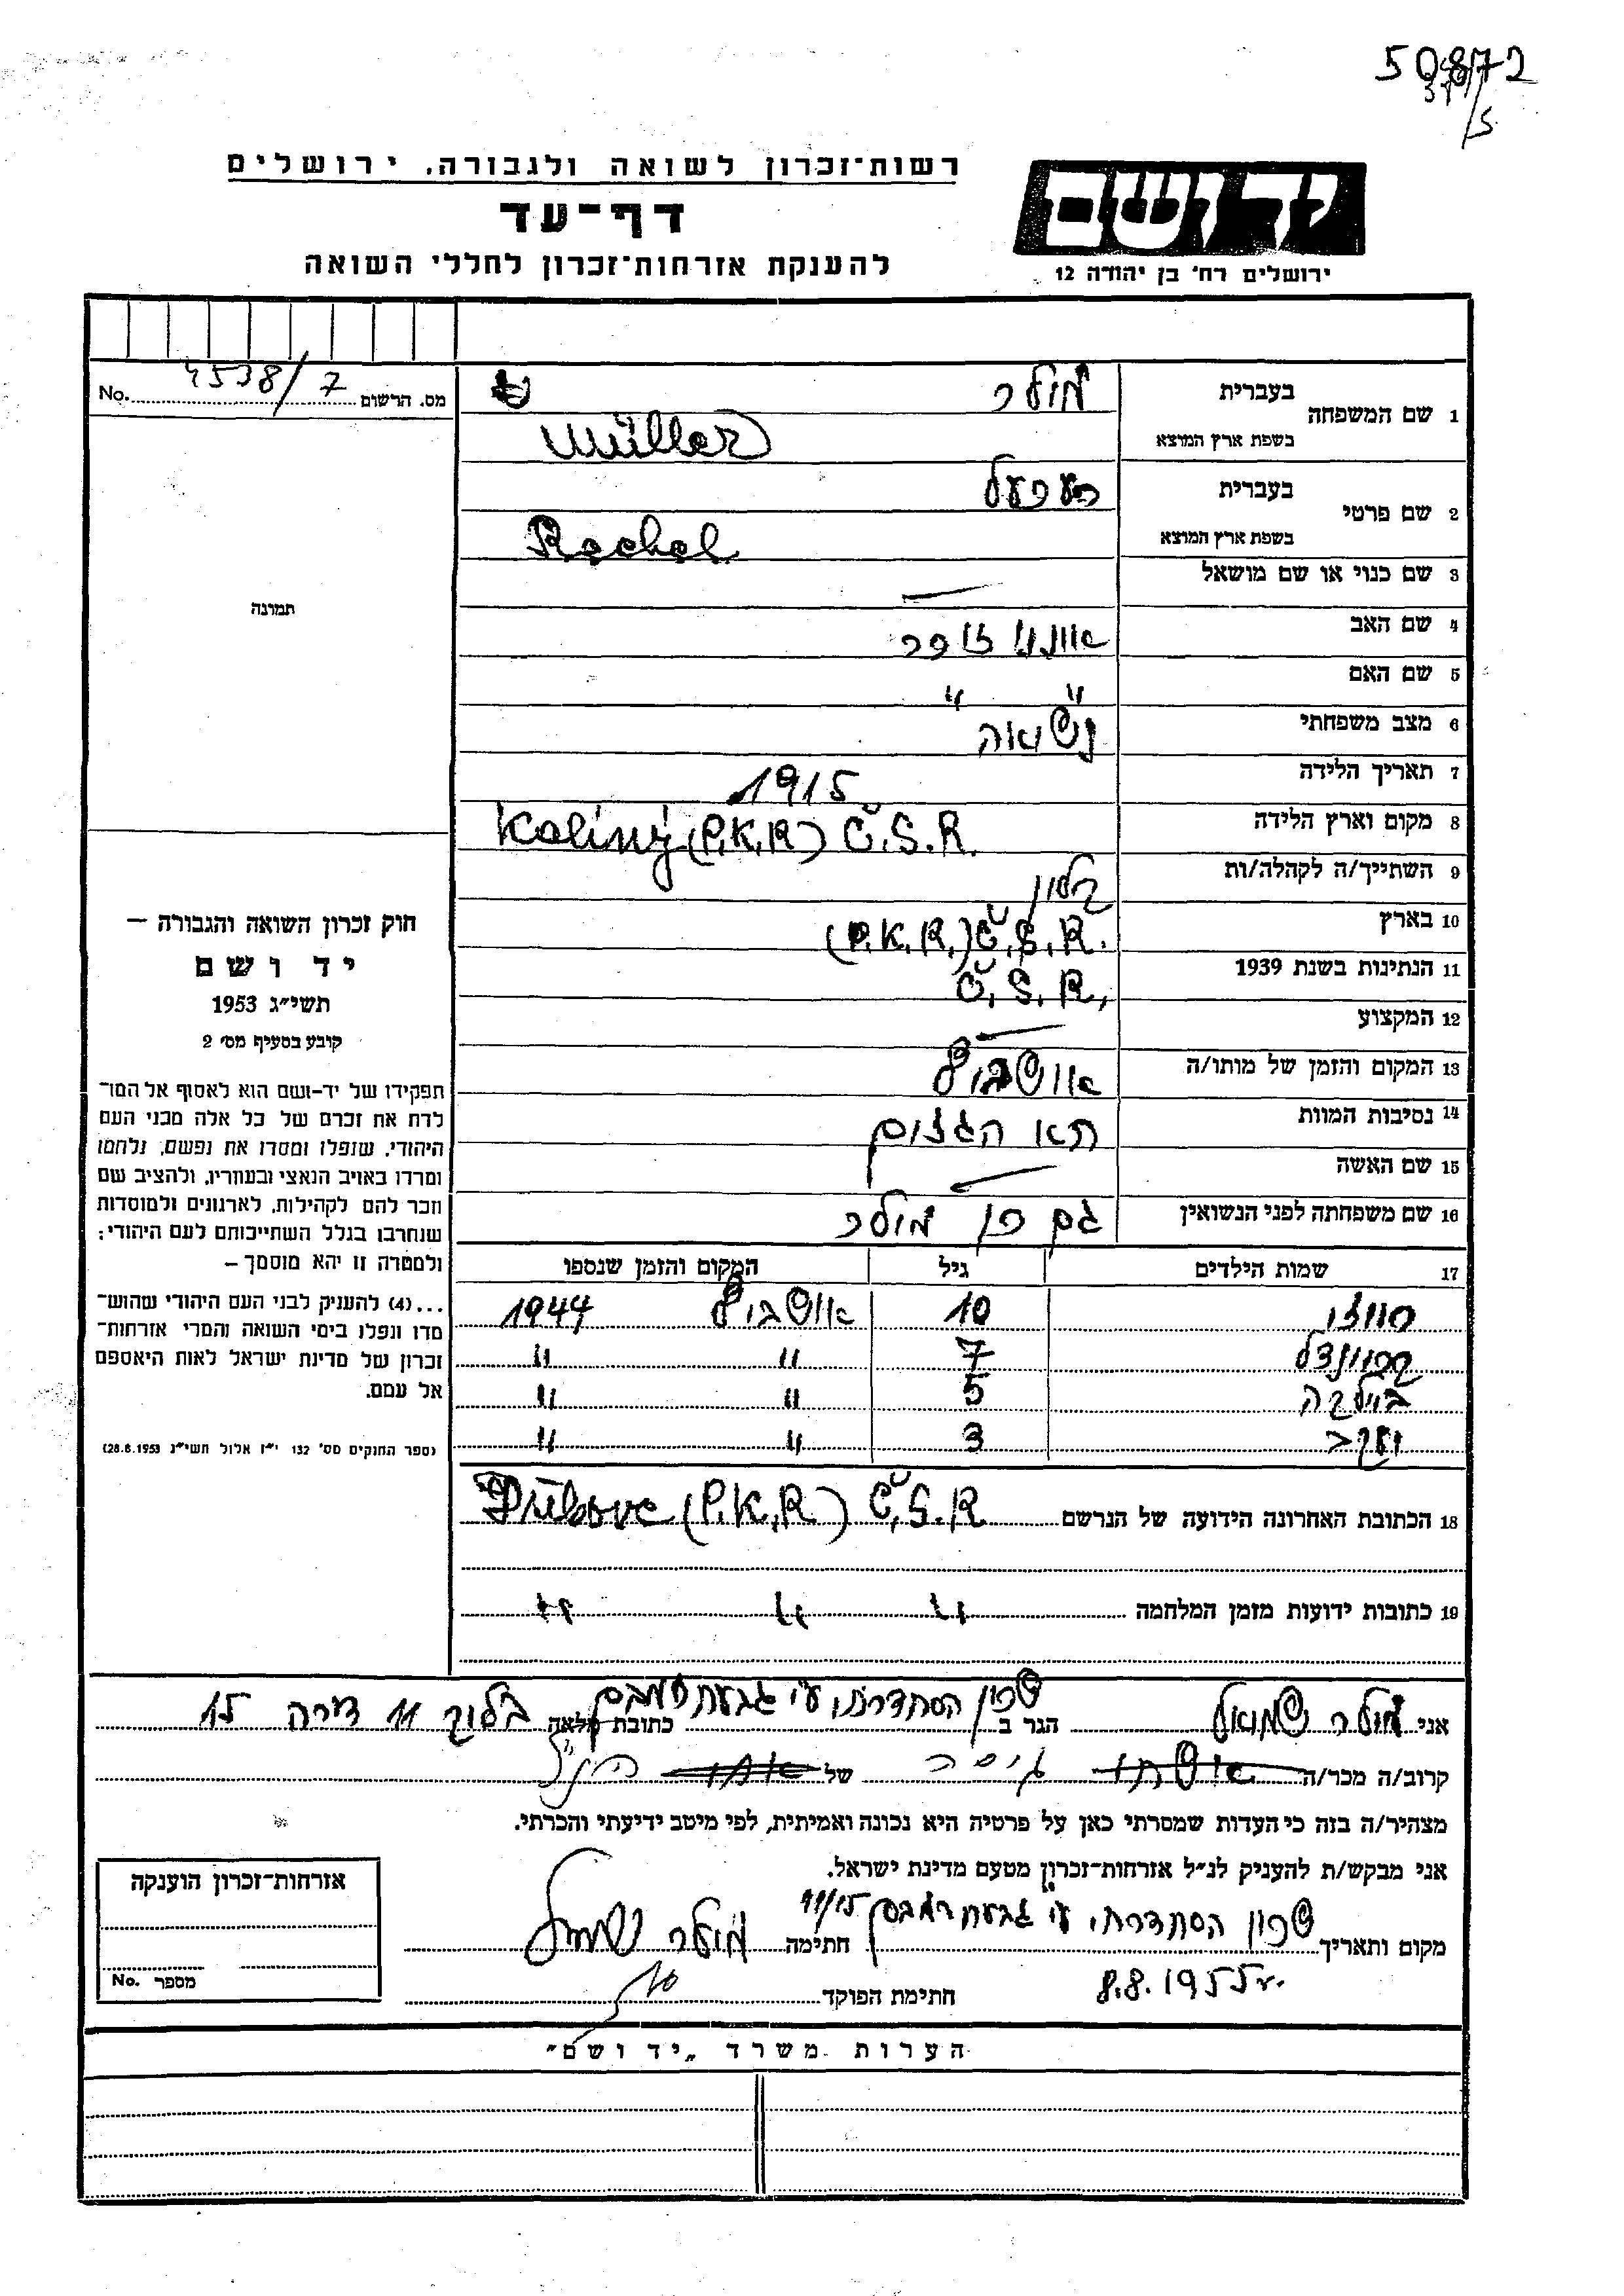 50872
/5
רשות־זכרון לשואה ולגבורה, ירושלים
דף־עד
להענקת אזרחות־זכרון לחללי השואה
יד ושם
ירושלים רח' בן יהודה 12
מס. הרשום 4538/7 No.
1 שם המשפחה בעברית מולר
בשפת ארץ המוצא Müller
2 שם פרטי בעברית
בשפת ארץ המוצא Rachel
3 שם כנוי או שם מושאל —
4 שם האב
5 שם האם " "
6 מצב משפחתי נשואה
7 תאריך הלידה 1915
8 מקום וארץ הלידה Kaliny (P.K.R) Č.S.R.
9 השתייך/ה לקהלה/ות
10 בארץ (P.K.R.) Č.S.R.
11 הנתינות בשנת 1939 Č.S.R.
12 המקצוע —
13 המקום והזמן של מותו/ה אושביץ
14 נסיבות המוות תא הגזים
15 שם האשה —
16 שם משפחתה לפני הנשואין גם כן מולר
17 שמות הילדים גיל המקום והזמן שנספו
10 אושביץ 1944
7 " "
5 " "
3 " "
18 הכתובת האחרונה הידועה של הנרשם Dubove (P.K.R) Č.S.R
19 כתובות ידועות מזמן המלחמה " " "
תמונה
חוק זכרון השואה והגבורה —
יד ושם
תשי"ג 1953
קובע בסעיף מס' 2
תפקידו של יד-ושם הוא לאסוף אל המו־
לדת את זכרם של כל אלה מבני העם
היהודי, שנפלו ומסרו את נפשם, נלחמו
ומרדו באויב הנאצי ובעוזריו, ולהציב שם
וזכר להם לקהילות, לארגונים ולמוסדות
שנחרבו בגלל השתייכותם לעם היהודי;
ולמטרה זו יהא מוסמך —
...(4) להעניק לבני העם היהודי שהוש־
מדו ונפלו בימי השואה והמרי אזרחות־
זכרון של מדינת ישראל לאות היאספם
אל עמם.
(ספר החוקים מס' 132 י"ז אלול תשי"ג 28.8.1953)
אני מולר שמואל הגר ב שכון הסתדרותי ע"י גבעת כתובת מלאה בלוק 11 דירה 15
קרוב/ה מכר/ה גיסה של הנ"ל
מצהיר/ה בזה כי העדות שמסרתי כאן על פרטיה היא נכונה ואמיתית, לפי מיטב ידיעתי והכרתי.
אני מבקש/ת להעניק לנ"ל אזרחות־זכרון מטעם מדינת ישראל.
מקום ותאריך שכון הסתדרותי ע"י גבעת 11/15 חתימה מולר שמואל
8.8.1955
חתימת הפוקד
אזרחות־זכרון הוענקה
מספר No.
הערות משרד „יד ושם"